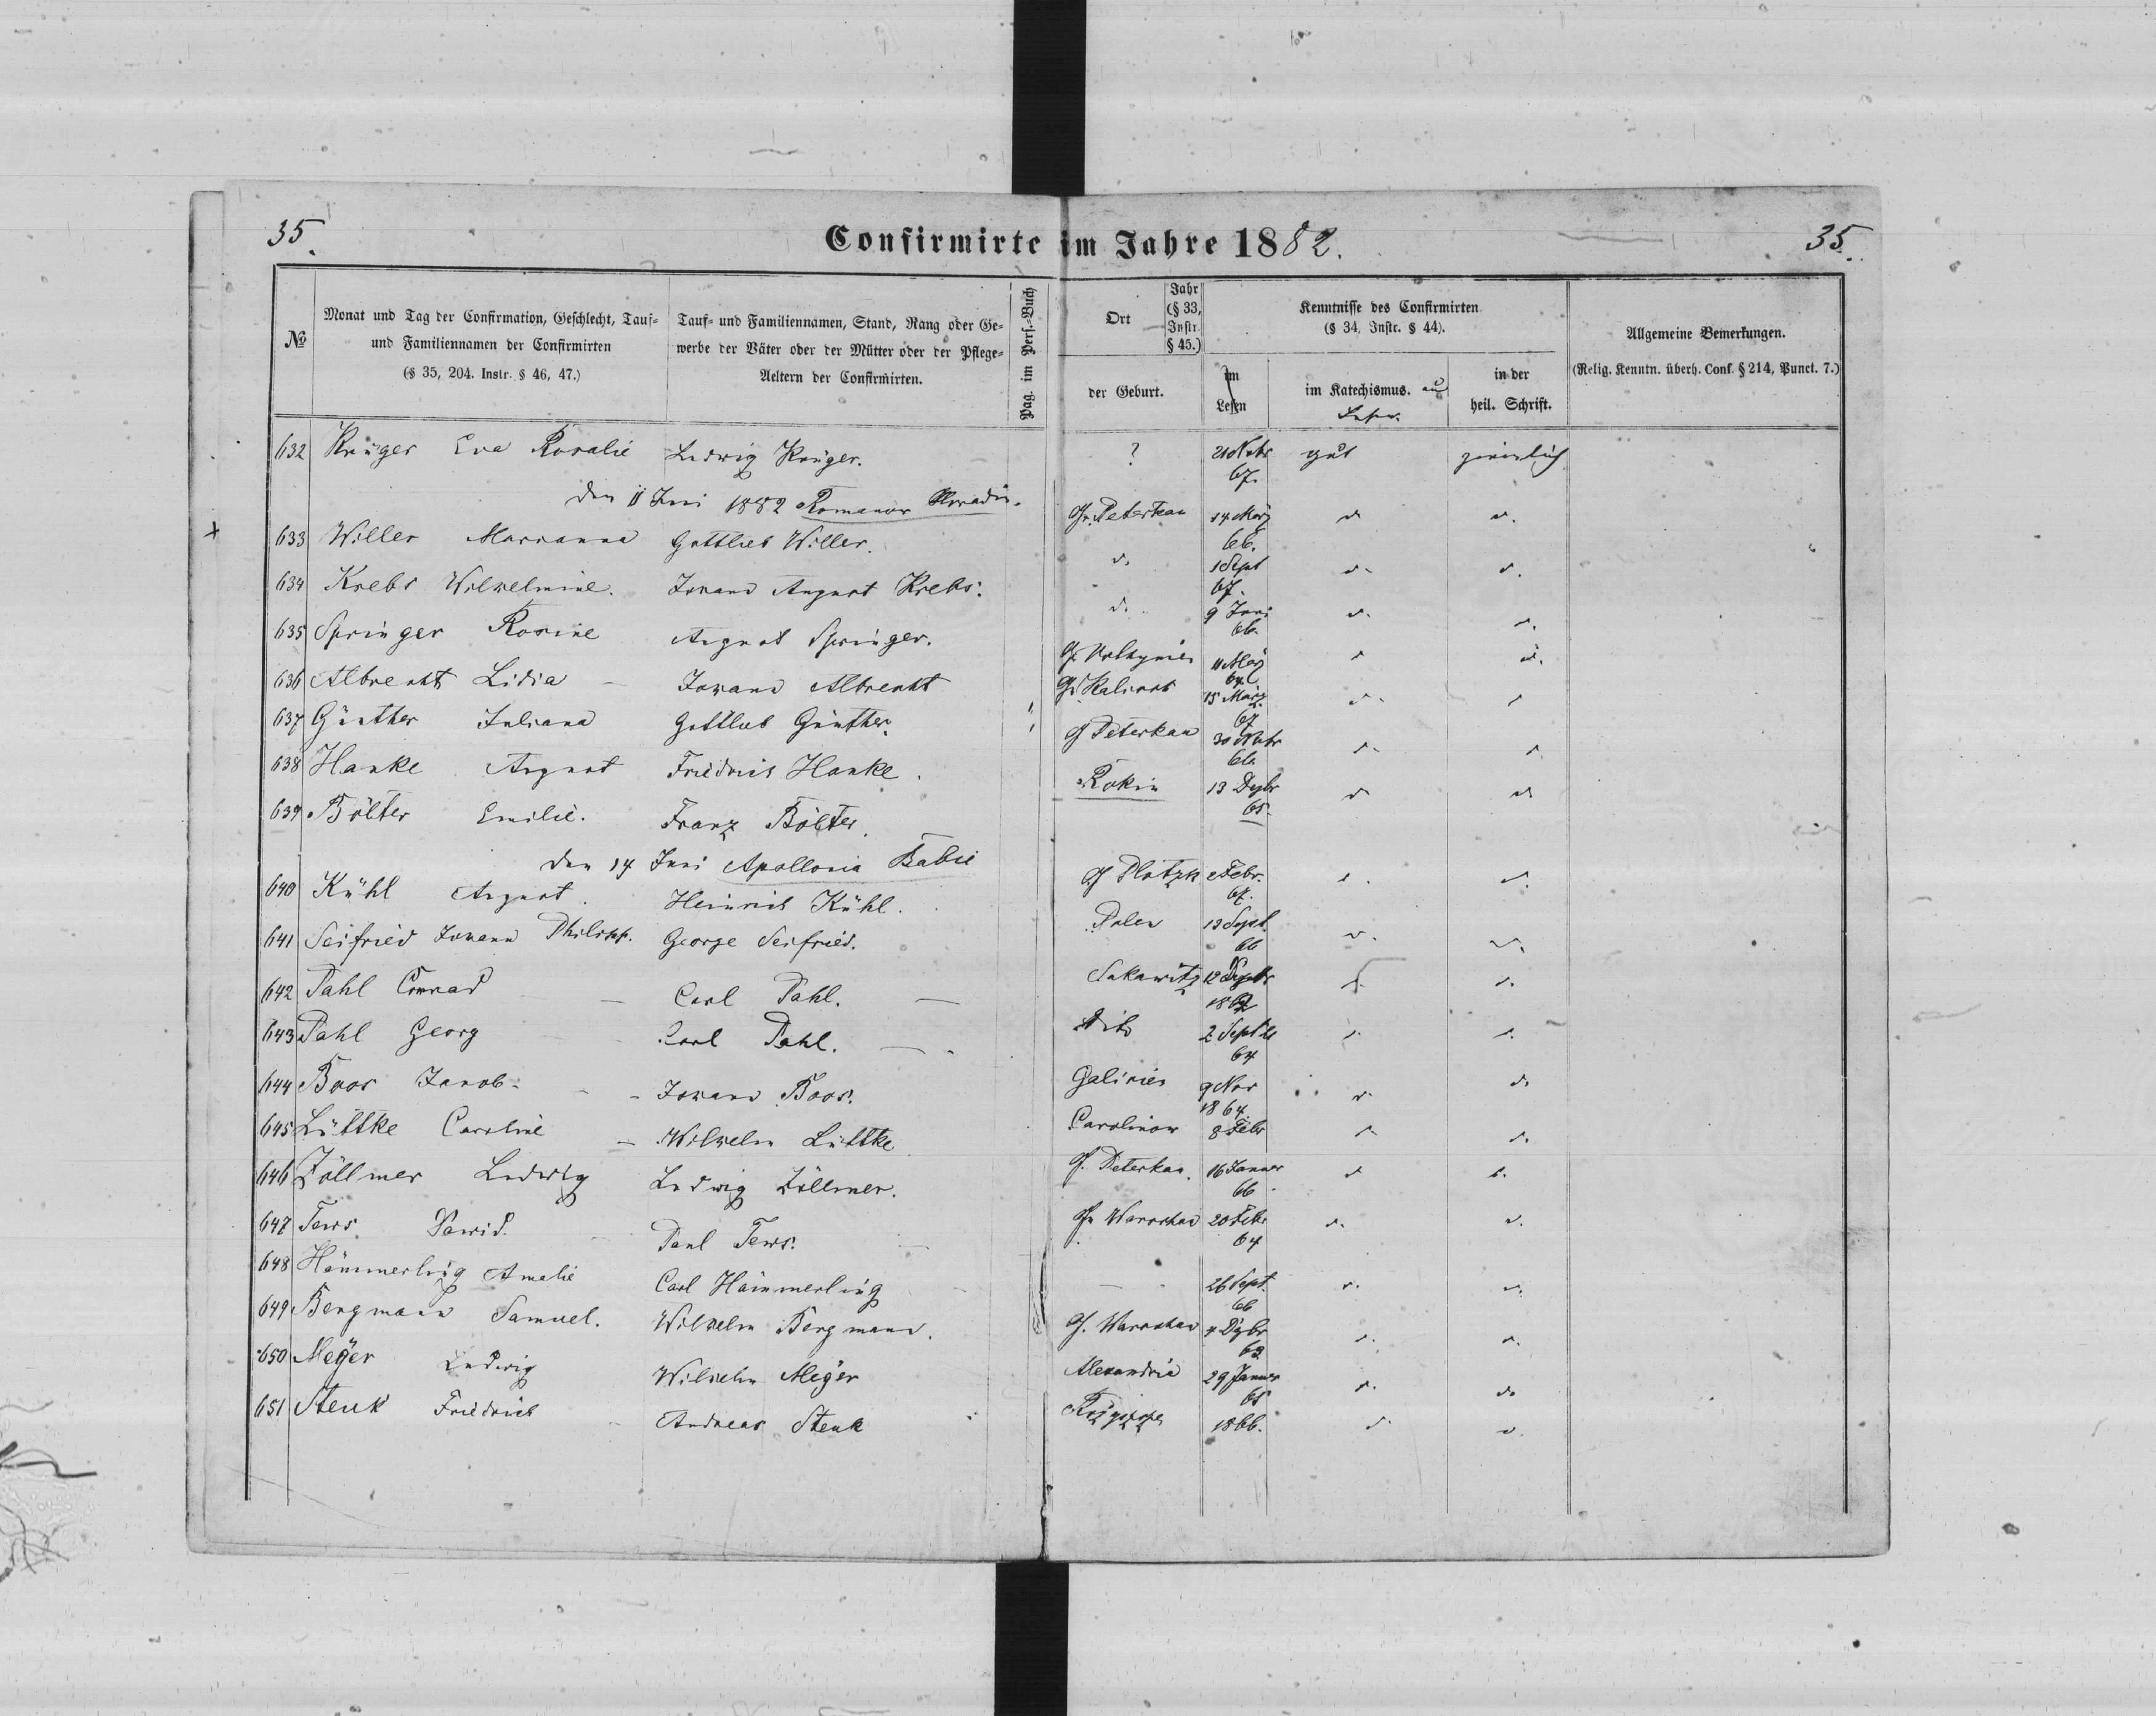 35.
Confirmirte im Jahre 1882.
35.
№
Monat und Tag der Confirmation, Geschlecht, Tauf-
und Familiennamen der Confirmirten
(§ 35, 204. Instr. § 46, 47.)
Tauf- und Familiennamen, Stand, Rang oder Ge-
werbe der Väter oder der Mütter oder der Pflege-
Aeltern der Confirmirten.
Pag. im Pers.-Buch
Ort
Jahr
(§ 33,
Instr.
§ 45.)
der Geburt.
Kenntnisse des Confirmirten
(§ 34, Instr. § 44).
im
Lesen
im Katechismus.
in der
heil. Schrift.
Allgemeine Bemerkungen.
(Relig. Kenntn. überh. Conf. § 214, Punct. 7.)
632 Krüger Eva Rosalie Ludwig Krüger. ? 21 Nvbr 67. gut ziemlich
den 11 Juni 1882 Romanow
633 Willer Marianna Gottlieb Willer. G. Peterkau 14 März 66. d. d.
634 Krebs Wilhelmine. Johann August Krebs. d. 1 Sept 67. d. d.
635 Springer Rosine August Springer. d. 9 Juni 66. d. d.
636 Albrecht Lidia – Johann Albrecht G. Volhynien 11 März 64 d. d.
637 Günther Juliana Gottlieb Günther. G. Kalisch 15 März 67 d. d.
638 Hanke August Friedrich Hanke. G Peterkau 30 Nvbr 66. d. d.
639 Bölter Emilie. Franz Bölter. Rokin 13 Dzbr 65. d. d.
den 14 Juni Apollonia Babie
640 Kühl August. Heinrich Kühl. G Plotzk Febr. 67. d. d.
641 Seifried Johann Philipp. George Seifried. Polen 13 Sept. 66 d. d.
642 Pahl Conrad – Carl Pahl. – 12 d. d.
643 Pahl Georg Carl Pahl. – 2 Sept 64 d. d.
644 Boos Jacob – Johann Boos. Galicien 9 Nov 1864. d. d.
645 Lüttke Caroline – Wilhelm Lüttke Carolinow 8 Febr d. d.
646 Zöllmer Ludwig Ludwig Zöllmer. G. Peterkau. 16 Januar 66 d. d.
647 Tews Dawid. – Paul Tews. – G. Warschau 20 Febr 64 d. d.
648 Hämmerling Amalie Carl Hämmerling – 26 Sept. 66 d. d.
649 Bergmann Samuel. Wilhelm Bergmann. G. Warschau 4 Dzbr 62 d. d.
650 Meÿer Ludwig Wilhelm Meÿer Alexandria 29 Januar 65 d. d.
651 Stenk Friedrich Andreas Stenk 1866. d. d.